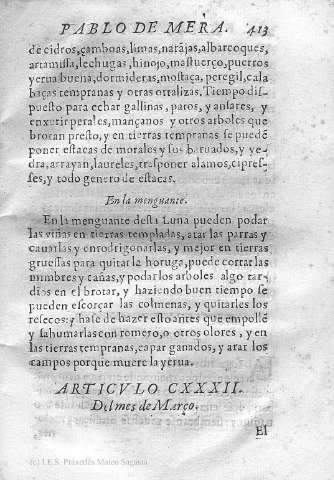 PABLO DE MERA. 413
de cidros, çamboas, limas, narājas, albarcoques,
artamisa, lechugas, hinojo, mastuerço, puerros
yerua buena, dormideras, mostaça, peregil, cala
baças tempranas y otras ortalizas. Tiempo dis-
puesto para echar gallinas, patos, y ansares, y
enxerir perales, mançanos y otros arboles que
brotan presto, y en tierras tempranas se puedē
poner estacas de morales y sus baruados, y ye-
dra, arrayan, laureles, trasponer alamos, cipres-
ses, y todo genero de estacas.
En la menguante.
En la menguante desta Luna pueden podar
las viñas en tierras templadas, atar las parras y
cauarlas y enrodrigonarlas, y mejor en tierras
gruessas para quitar la horuga, puede cortar las
mimbres y cañas, y podar los arboles algo tar-
dios en el brotar, y haziendo buen tiempo se
pueden escorçar las colmenas, y quitarles los
resecos: y hase de hazer esto antes que empollē
y sahumarlas con romero, o otros olores, y en
las tierras tempranas, capar ganados, y arar los
campos porque muere la yerua.
ARTICVLO CXXXII.
Del mes de Março.
El
(c) I.E.S. Práxedes Mateo Sagasta